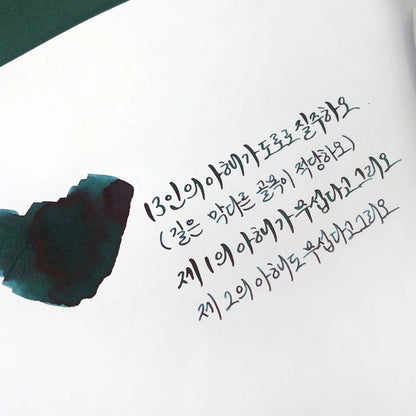 13인의 아해가 도로로 질주하오
(길은 막다른 골목이 적당하오)
제 1의 아해가 무섭다고 그리오
제 2의 아해도 무섭다고 그리오